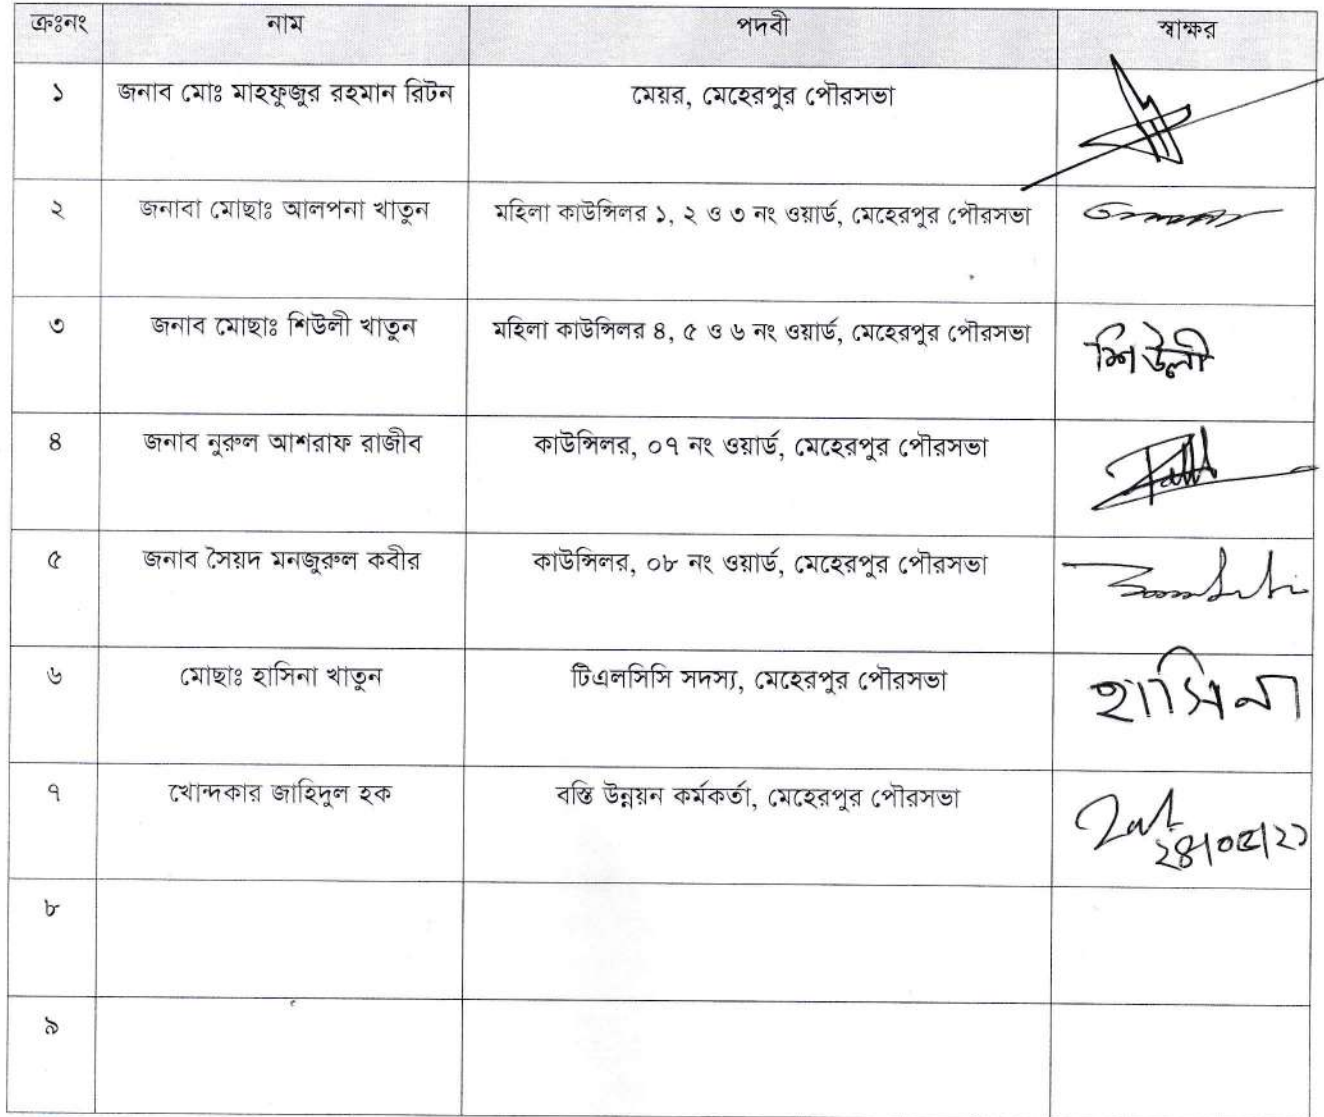 ক্রঃনং নাম পদবী স্বাক্ষর
১ জনাব মোঃ মাহফুজুর রহমান রিটন মেয়র, মেহেরপুর পৌরসভা
২ জনাবা মোছাঃ আলপনা খাতুন মহিলা কাউন্সিলর ১, ২ ও ৩ নং ওয়ার্ড, মেহেরপুর পৌরসভা
৩ জনাব মোছাঃ শিউলী খাতুন মহিলা কাউন্সিলর ৪, ৫ ও ৬ নং ওয়ার্ড, মেহেরপুর পৌরসভা শিউলী
৪ জনাব নুরুল আশরাফ রাজীব কাউন্সিলর, ০৭ নং ওয়ার্ড, মেহেরপুর পৌরসভা
৫ জনাব সৈয়দ মনজুরুল কবীর কাউন্সিলর, ০৮ নং ওয়ার্ড, মেহেরপুর পৌরসভা
৬ মোছাঃ হাসিনা খাতুন টিএলসিসি সদস্য, মেহেরপুর পৌরসভা হাসিনা
৭ খোন্দকার জাহিদুল হক বস্তি উন্নয়ন কর্মকর্তা, মেহেরপুর পৌরসভা
২৪/০৫/২১
৮
৯